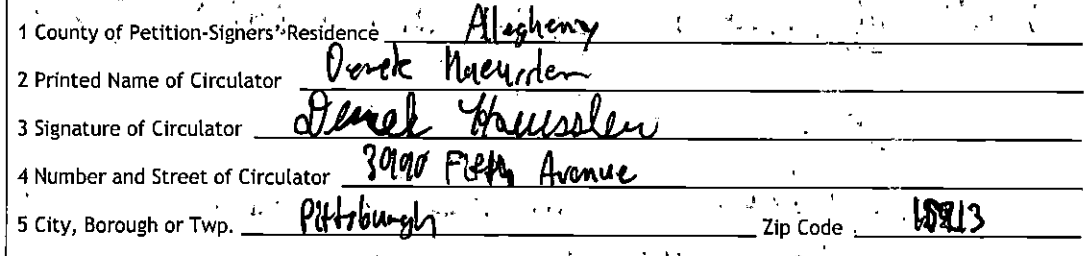 1 County of Petition-Signers' Residence Allegheny
2 Printed Name of Circulator Derek Haeussler
3 Signature of Circulator Derek Haeussler
4 Number and Street of Circulator 3990 Fifth Avenue
5 City, Borough or Twp. Pittsburgh Zip Code 15213